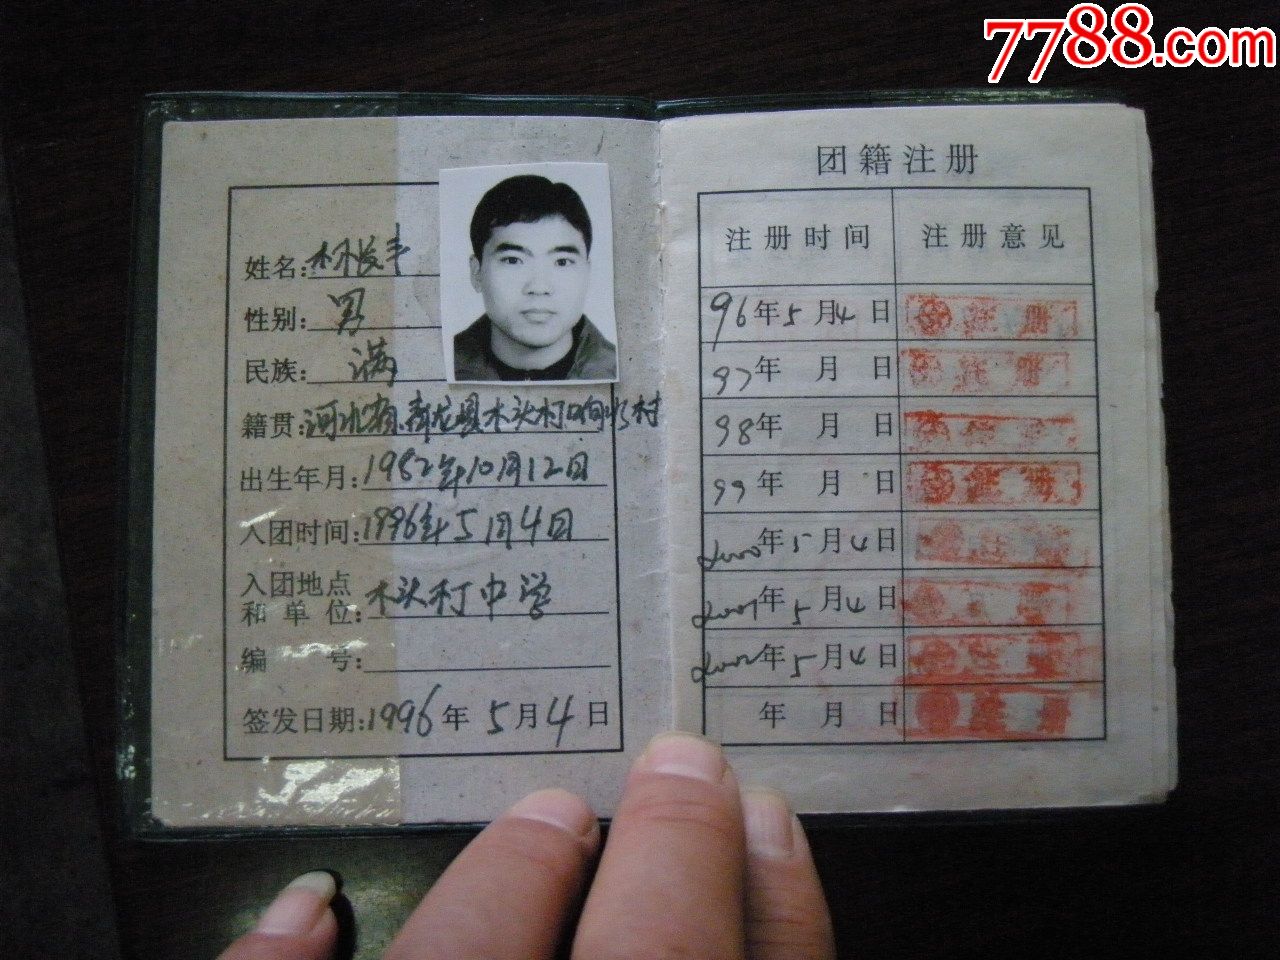 7788.com
姓名:林长丰
性别:男
民族:满
籍贯:河北省青龙县木头村口向水村
出生年月:1982年10月12日
入团时间:1996年5月4日
入团地点
和单位:木头村中学
编 号:
签发日期:1996年5月4日
团籍注册
注册时间 注册意见
96年5月4日 注册
97年 月 日 注册
98年 月 日 注册
99年 月 日 注册
2000年5月4日 注册
2001年5月4日 注册
2002年5月4日 注册
年 月 日 注册